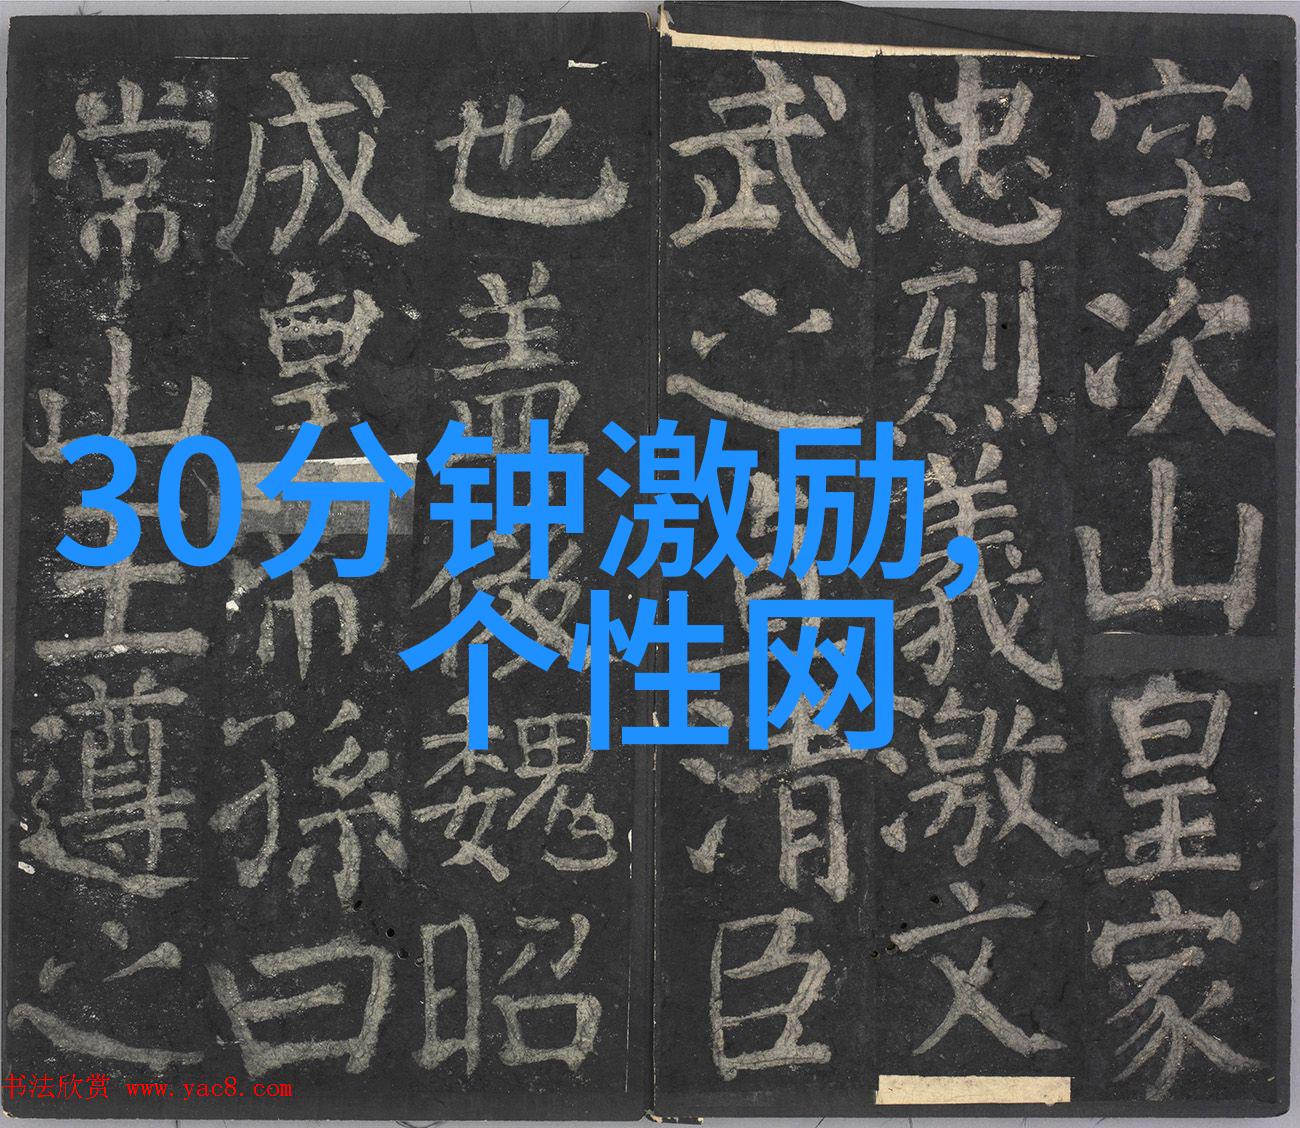 30分钟激励,
个性网
字次山皇家
忠烈義激文
武之直清臣
也盖後魏昭
成皇帝孫曰
常山王遵之
书法欣赏 www.yac8.com